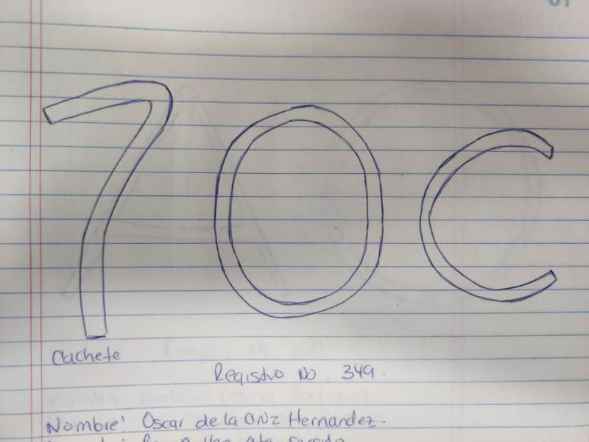 7OC
Cachete
Registro No 349.
Nombre: Oscar de la Cruz Hernandez.